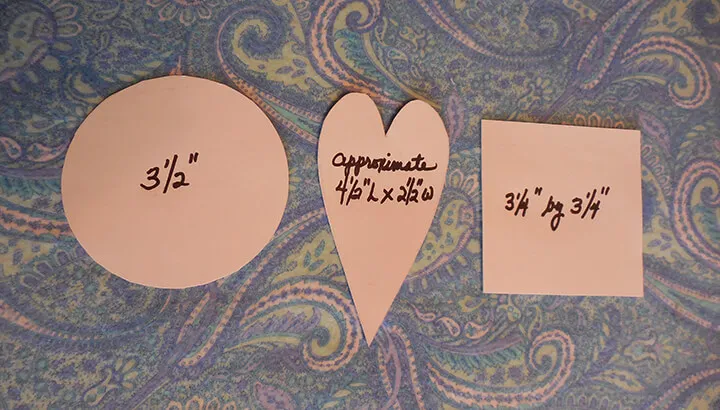 3½"
approximate
4½"L x 2½"W
3¼" by 3¼"